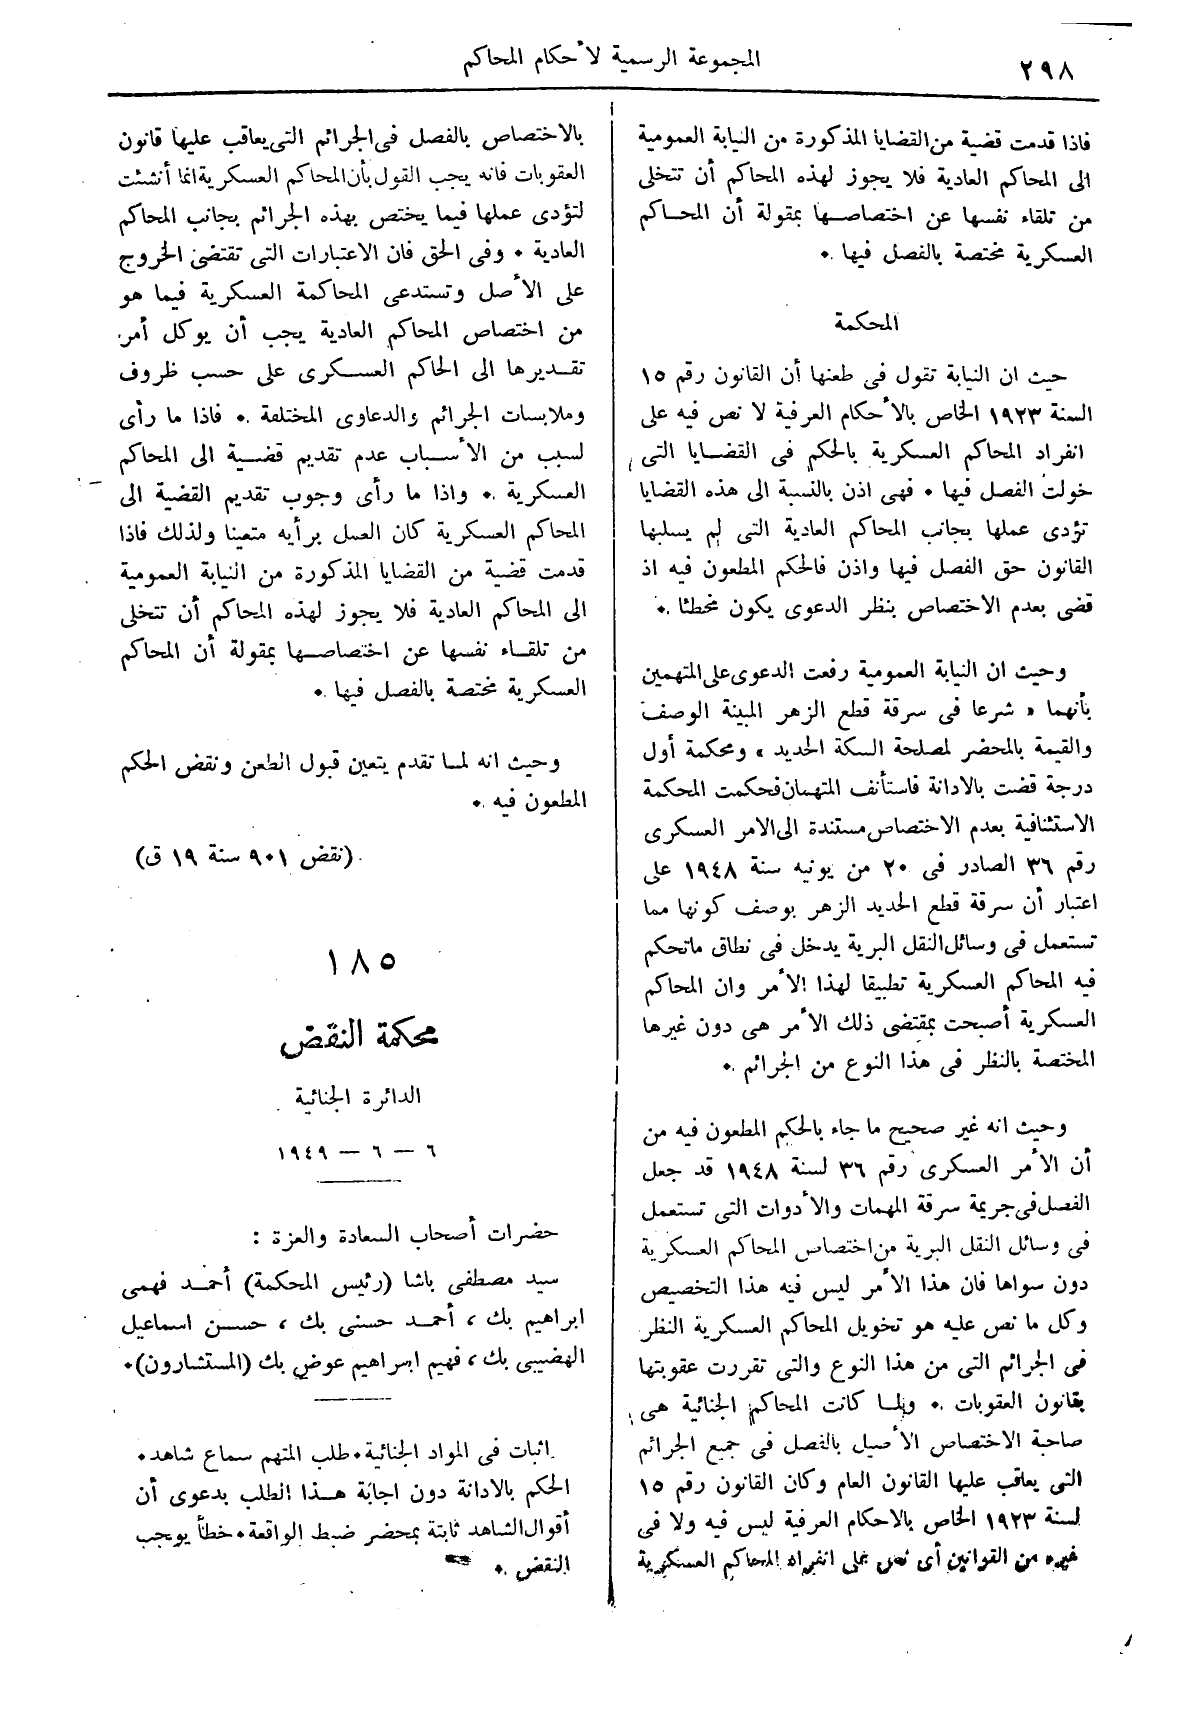 ٢٩٨
المجموعة الرسمية لأحكام المحاكم
فاذا قدمت قضية من القضايا المذكورة من النيابة العمومية
الى المحاكم العادية فلا يجوز لهذه المحاكم أن تتخلى
من تلقاء نفسها عن اختصاصها بمقولة أن المحاكم
العسكرية مختصة بالفصل فيها .
المحكمة
حيث ان النيابة تقول فى طعنها أن القانون رقم ١٥
لسنة ١٩٢٣ الخاص بالأحكام العرفية لا نص فيه على
انفراد المحاكم العسكرية بالحكم فى القضايا التى
خولت الفصل فيها . فهى اذن بالنسبة الى هذه القضايا
تؤدى عملها بجانب المحاكم العادية التى لم يسلبها
القانون حق الفصل فيها واذن فالحكم المطعون فيه اذ
قضى بعدم الاختصاص بنظر الدعوى يكون مخطئا .
وحيث ان النيابة العمومية رفعت الدعوى على المتهمين
بأنهما « شرعا فى سرقة قطع الزهر المبينة الوصف
والقيمة بالمحضر لمصلحة السكة الحديد » ومحكمة أول
درجة قضت بالادانة فاستأنف المتهمان فحكمت المحكمة
الاستئنافية بعدم الاختصاص مستندة الى الامر العسكرى
رقم ٣٦ الصادر فى ٢٠ من يونيه سنة ١٩٤٨ على
اعتبار أن سرقة قطع الحديد الزهر بوصف كونها مما
تستعمل فى وسائل النقل البرية يدخل فى نطاق ماتحكم
فيه المحاكم العسكرية تطبيقا لهذا الأمر وان المحاكم
العسكرية أصبحت بمقتضى ذلك الأمر هى دون غيرها
المختصة بالنظر فى هذا النوع من الجرائم .
وحيث انه غير صحيح ما جاء بالحكم المطعون فيه من
أن الأمر العسكرى رقم ٣٦ لسنة ١٩٤٨ قد جعل
الفصل فى جريمة سرقة المهمات والأدوات التى تستعمل
فى وسائل النقل البرية من اختصاص المحاكم العسكرية
دون سواها فان هذا الأمر ليس فيه هذا التخصيص
وكل ما نص عليه هو تخويل المحاكم العسكرية النظر
فى الجرائم التى من هذا النوع والتى تقررت عقوبتها
بقانون العقوبات . ولما كانت المحاكم الجنائية هى
صاحبة الاختصاص الأصيل بالفصل فى جميع الجرائم
التى يعاقب عليها القانون العام وكان القانون رقم ١٥
لسنة ١٩٢٣ الخاص بالاحكام العرفية ليس فيه ولا فى
غيره من القوانين أى نص على انفراد المحاكم العسكرية
بالاختصاص بالفصل فى الجرائم التى يعاقب عليها قانون
العقوبات فانه يجب القول بأن المحاكم العسكرية انما أنشئت
لتؤدى عملها فيما يختص بهذه الجرائم بجانب المحاكم
العادية . وفى الحق فان الاعتبارات التى تقتضى الخروج
على الأصل وتستدعى المحاكمة العسكرية فيما هو
من اختصاص المحاكم العادية يجب أن يوكل أمر
تقديرها الى الحاكم العسكرى على حسب ظروف
وملابسات الجرائم والدعاوى المختلفة . فاذا ما رأى
لسبب من الأسباب عدم تقديم قضية الى المحاكم
العسكرية . واذا ما رأى وجوب تقديم القضية الى
المحاكم العسكرية كان العمل برأيه متعينا ولذلك فاذا
قدمت قضية من القضايا المذكورة من النيابة العمومية
الى المحاكم العادية فلا يجوز لهذه المحاكم أن تتخلى
من تلقاء نفسها عن اختصاصها بمقولة أن المحاكم
العسكرية مختصة بالفصل فيها .
وحيث انه لما تقدم يتعين قبول الطعن ونقض الحكم
المطعون فيه .
(نقض ٩٠١ سنة ١٩ ق)
١٨٥
محكمة النقض
الدائرة الجنائية
٦ – ٦ – ١٩٤٩
حضرات أصحاب السعادة والعزة :
سيد مصطفى باشا (رئيس المحكمة) أحمد فهمى
ابراهيم بك ، أحمد حسنى بك ، حسن اسماعيل
الهضيبى بك ، فهيم ابراهيم عوض بك (المستشارون).
اثبات فى المواد الجنائية . طلب المتهم سماع شاهد .
الحكم بالادانة دون اجابة هذا الطلب بدعوى أن
أقوال الشاهد ثابتة بمحضر ضبط الواقعة . خطأ يوجب
النقض .